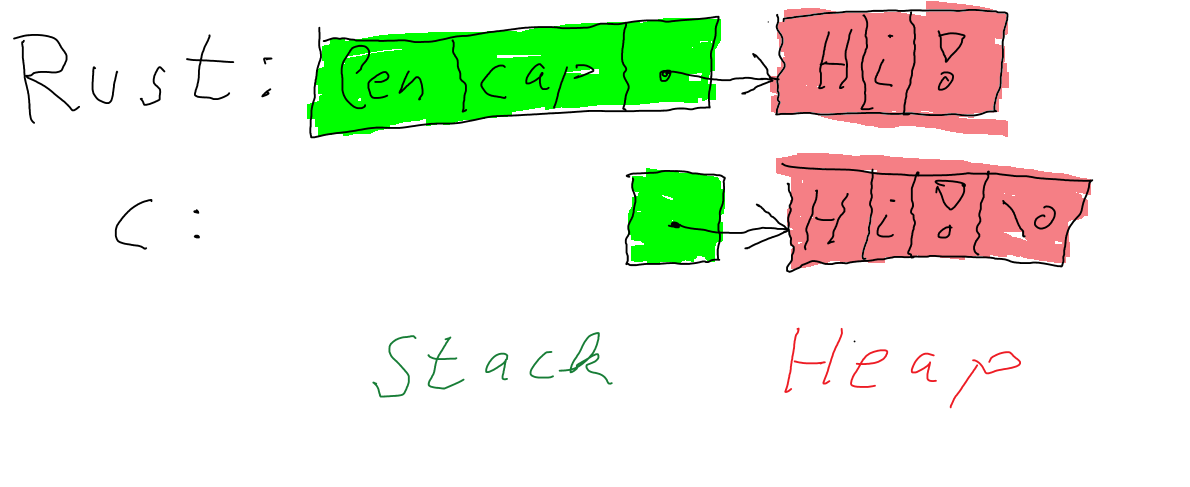 Rust: len cap Hi!
C: Hi!\0
Stack Heap